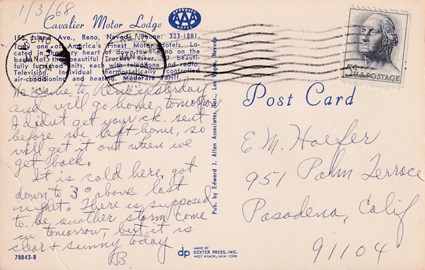 1/3/68
Cavalier Motor Lodge
AAA
150 Ave., Reno, Nevada Phone: 323-1881.
Truly one of America's Finest Motor Hotels. Located in the very heart of downtown Reno on the
banks of the beautiful Truckee River. beautifully
furnished units, each with telephone and
Television. Individual thermostatically controlled
air-conditioning and heating.
We came to Reno yesterday
and will go home tomorrow.
I didn't get your ck. sent
before we left home, so
will get it out when we
get back.
It is cold here, got
down to 3° above last
night. There is supposed
to be another storm come
in tomorrow, but it is
clear + sunny today
B
78843-B
Pub. by Edward J. Allen Associates, Las Vegas, Nevada
dp
MADE BY
DEXTER PRESS, INC.
WEST NYACK, NEW YORK
5¢ U.S. POSTAGE
Post Card
E M. Hoefer
951 Palm Terrace
Pasadena, Calif
91104